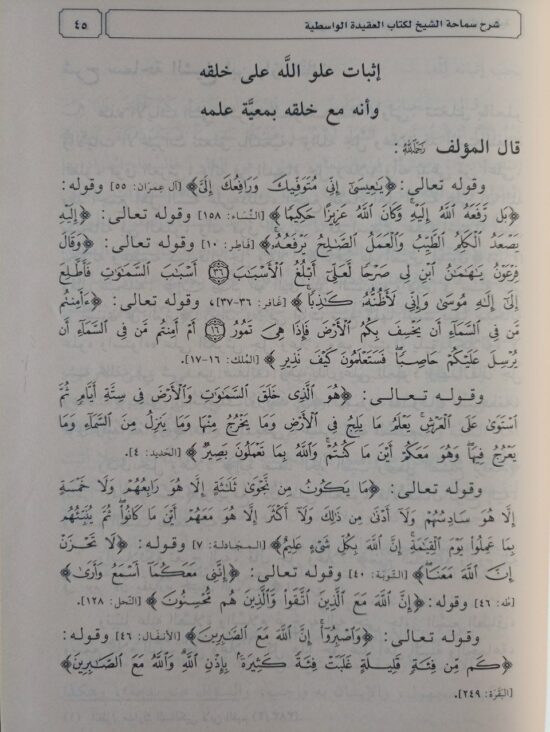 شرح سماحة الشيخ لكتاب العقيدة الواسطية
٤٥
إثبات علو اللَّه على خلقه
وأنه مع خلقه بمعيَّة علمه
قال المؤلف رَحِمَهُ اللَّهُ:
وقوله تعالى: ﴿يَٰعِيسَىٰٓ إِنِّي مُتَوَفِّيكَ وَرَافِعُكَ إِلَيَّ﴾ [آل عِمرَان: ٥٥] وقوله:
﴿بَل رَّفَعَهُ ٱللَّهُ إِلَيۡهِۚ وَكَانَ ٱللَّهُ عَزِيزًا حَكِيمٗا﴾ [النِّسَاء: ١٥٨] وقوله تعالى: ﴿إِلَيۡهِ
يَصۡعَدُ ٱلۡكَلِمُ ٱلطَّيِّبُ وَٱلۡعَمَلُ ٱلصَّٰلِحُ يَرۡفَعُهُۥ﴾ [فَاطِر: ١٠] وقوله تعالى: ﴿وَقَالَ
فِرۡعَوۡنُ يَٰهَٰمَٰنُ ٱبۡنِ لِي صَرۡحٗا لَّعَلِّيٓ أَبۡلُغُ ٱلۡأَسۡبَٰبَ ٣٦ أَسۡبَٰبَ ٱلسَّمَٰوَٰتِ فَأَطَّلِعَ
إِلَىٰٓ إِلَٰهِ مُوسَىٰ وَإِنِّي لَأَظُنُّهُۥ كَٰذِبٗا﴾ [غَافر: ٣٦-٣٧]، وقوله تعالى: ﴿ءَأَمِنتُم
مَّن فِي ٱلسَّمَآءِ أَن يَخۡسِفَ بِكُمُ ٱلۡأَرۡضَ فَإِذَا هِيَ تَمُورُ ١٦ أَمۡ أَمِنتُم مَّن فِي ٱلسَّمَآءِ أَن
يُرۡسِلَ عَلَيۡكُمۡ حَاصِبٗاۖ فَسَتَعۡلَمُونَ كَيۡفَ نَذِيرِ﴾ [المُلك: ١٦-١٧].
وقوله تعالى: ﴿هُوَ ٱلَّذِي خَلَقَ ٱلسَّمَٰوَٰتِ وَٱلۡأَرۡضَ فِي سِتَّةِ أَيَّامٖ ثُمَّ
ٱسۡتَوَىٰ عَلَى ٱلۡعَرۡشِۖ يَعۡلَمُ مَا يَلِجُ فِي ٱلۡأَرۡضِ وَمَا يَخۡرُجُ مِنۡهَا وَمَا يَنزِلُ مِنَ ٱلسَّمَآءِ وَمَا
يَعۡرُجُ فِيهَاۖ وَهُوَ مَعَكُمۡ أَيۡنَ مَا كُنتُمۡۚ وَٱللَّهُ بِمَا تَعۡمَلُونَ بَصِيرٞ﴾ [الحَديد: ٤].
وقوله تعالى: ﴿مَا يَكُونُ مِن نَّجۡوَىٰ ثَلَٰثَةٍ إِلَّا هُوَ رَابِعُهُمۡ وَلَا خَمۡسَةٍ
إِلَّا هُوَ سَادِسُهُمۡ وَلَآ أَدۡنَىٰ مِن ذَٰلِكَ وَلَآ أَكۡثَرَ إِلَّا هُوَ مَعَهُمۡ أَيۡنَ مَا كَانُواْۖ ثُمَّ يُنَبِّئُهُم
بِمَا عَمِلُواْ يَوۡمَ ٱلۡقِيَٰمَةِۚ إِنَّ ٱللَّهَ بِكُلِّ شَيۡءٍ عَلِيمٌ﴾ [المجَادلة: ٧] وقوله: ﴿لَا تَحۡزَنۡ
إِنَّ ٱللَّهَ مَعَنَاۖ﴾ [التّوبَة: ٤٠] وقوله تعالى: ﴿إِنَّنِي مَعَكُمَآ أَسۡمَعُ وَأَرَىٰ﴾
[طه: ٤٦] وقوله: ﴿إِنَّ ٱللَّهَ مَعَ ٱلَّذِينَ ٱتَّقَواْ وَّٱلَّذِينَ هُم مُّحۡسِنُونَ﴾ [النّحل: ١٢٨].
وقوله تعالى: ﴿وَٱصۡبِرُوٓاْۚ إِنَّ ٱللَّهَ مَعَ ٱلصَّٰبِرِينَ﴾ [الأنفَال: ٤٦] وقوله:
﴿كَم مِّن فِئَةٖ قَلِيلَةٍ غَلَبَتۡ فِئَةٗ كَثِيرَةَۢ بِإِذۡنِ ٱللَّهِۗ وَٱللَّهُ مَعَ ٱلصَّٰبِرِينَ﴾
[البَقَرَة: ٢٤٩].